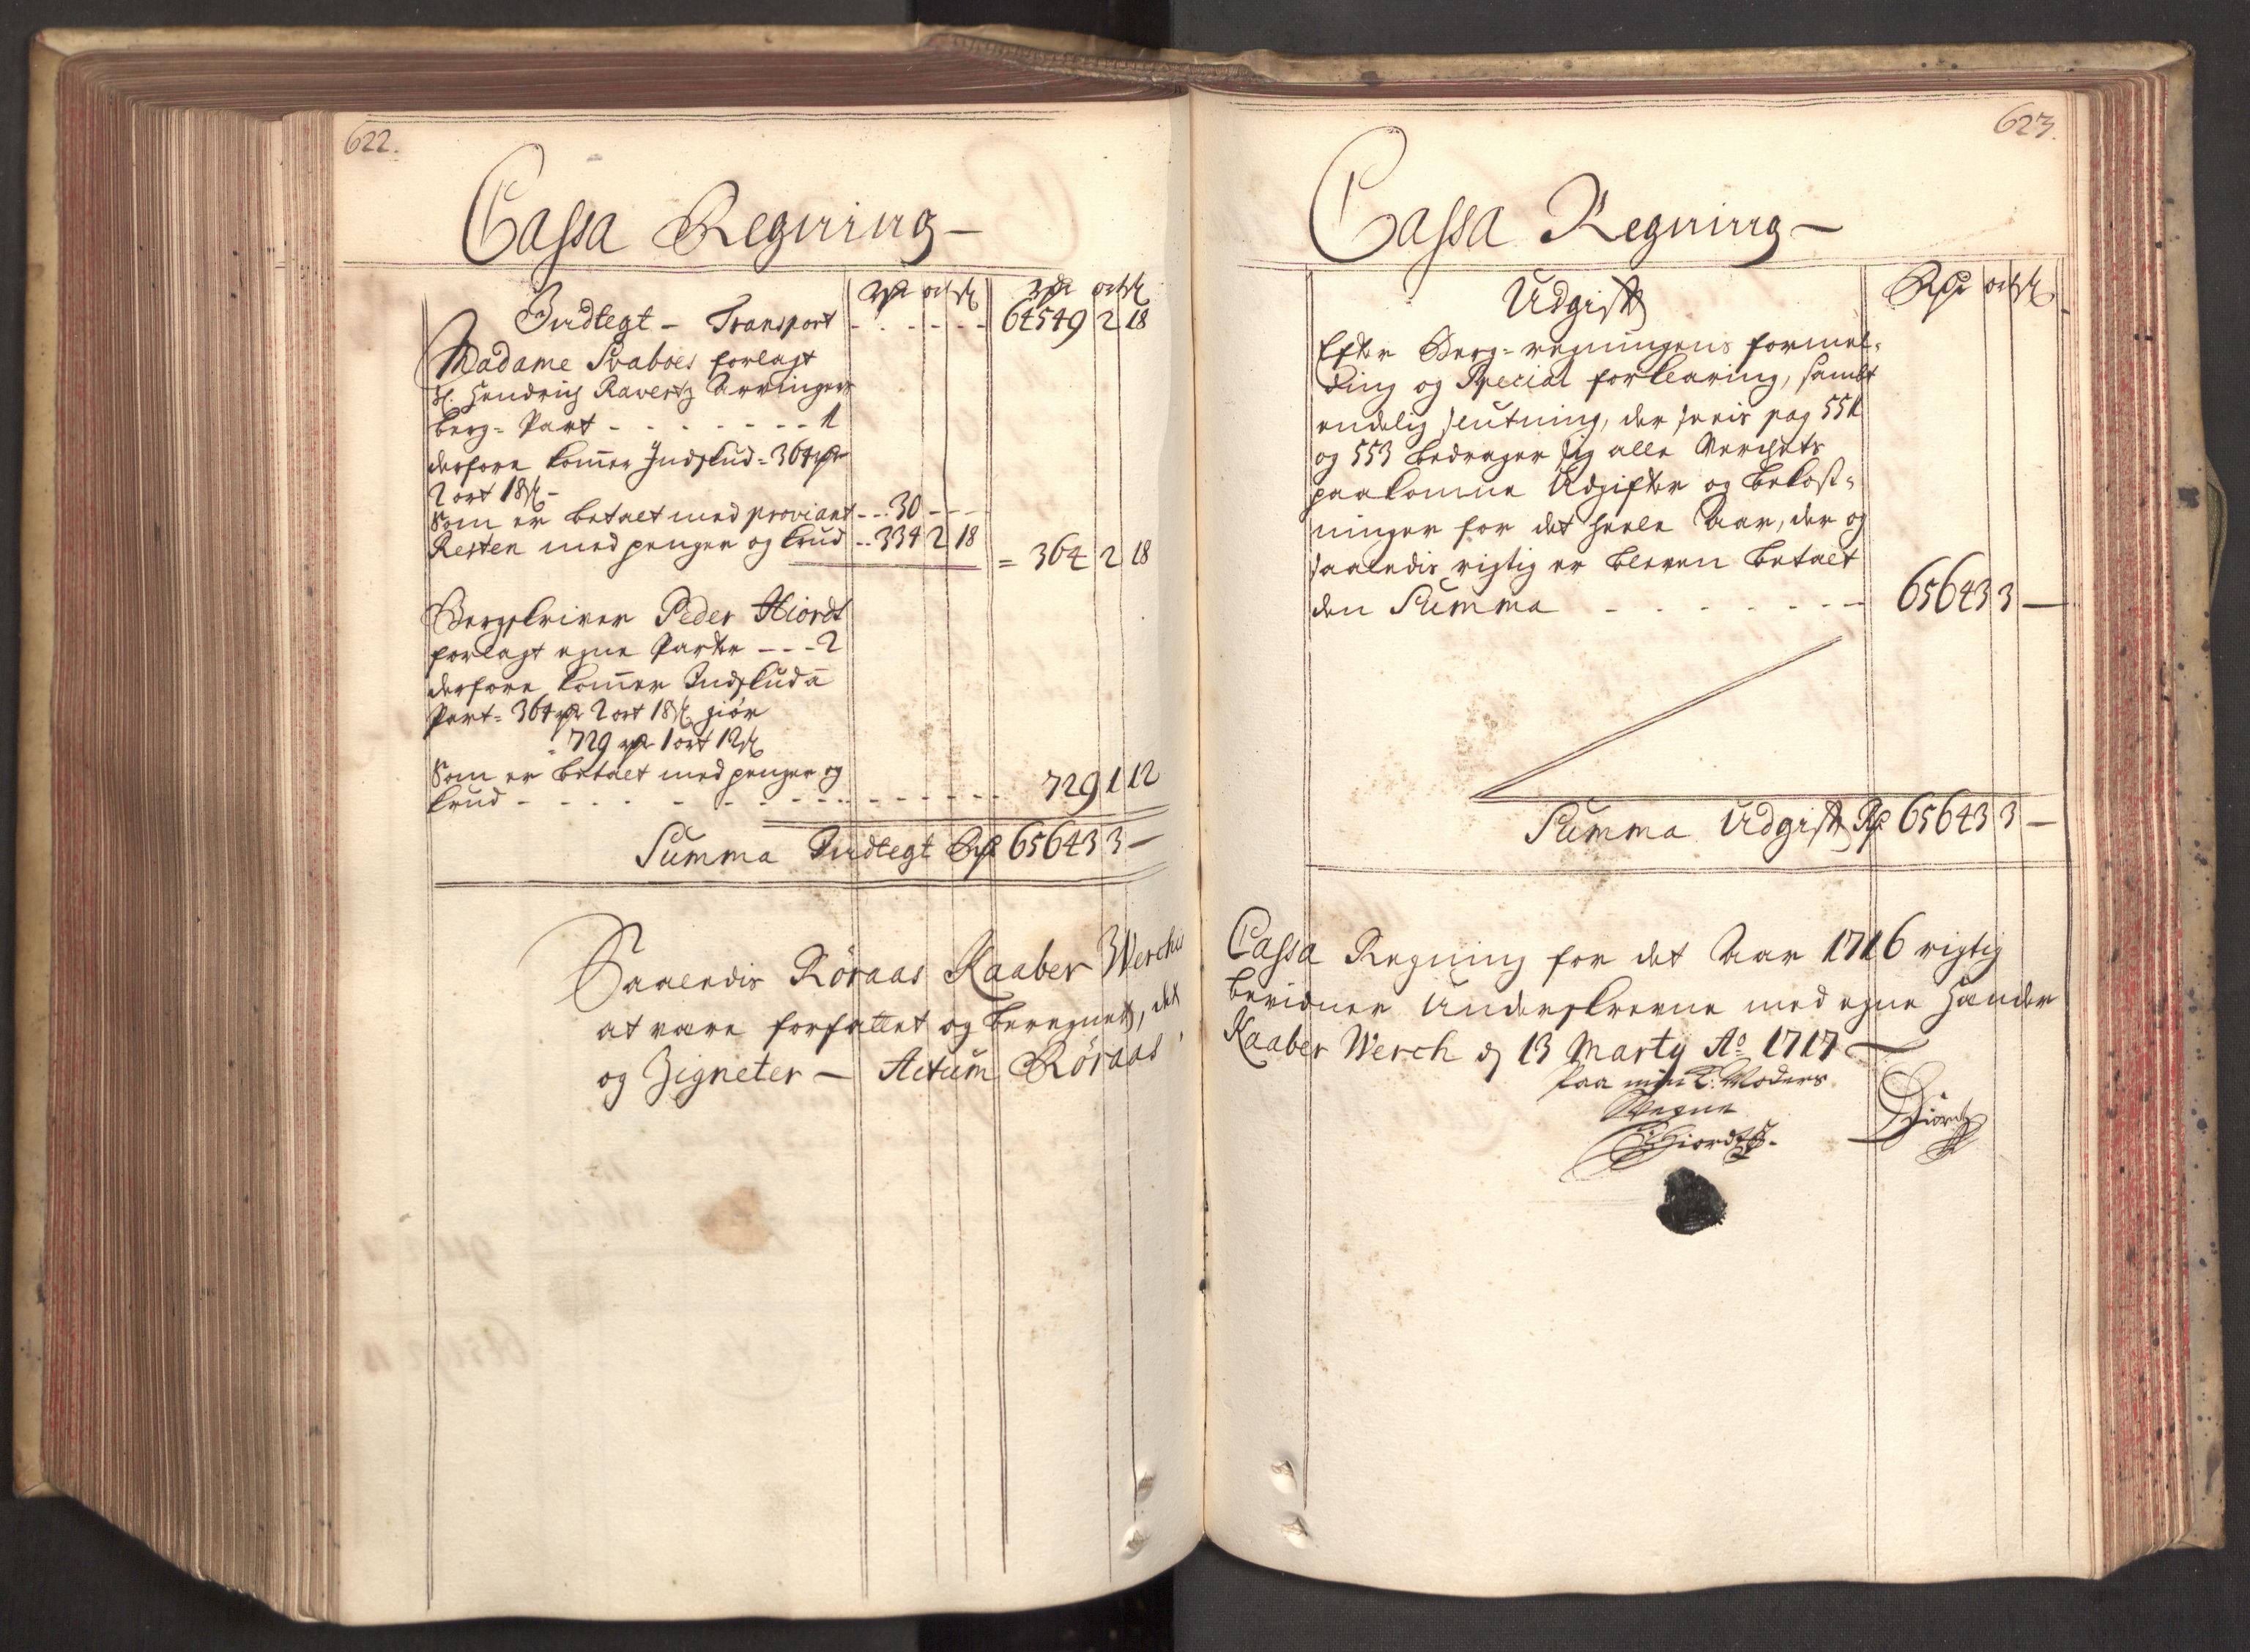 622.
Cassa Regning –
Rdr ort sk Rdr ort sk
Indtegt – Transport - - - - - 64549 2 18
Madame Svaboes forlagt
Sl. Hendrich Ravertz Arvinger
berg= Part - - - - - - - 1
derfore kommer Indskud = 364 rdr
2 ort 18 sk –
Som er betalt med proviant - - 30 - - -
Resten med penger og krud - - 334 2 18
= 364 2 18
Bergskriver Peder Hiordt
forlagt egne Parter - - - 2
derfore kommer Indskud a
Part = 364 rdr 2 ort 18 sk giör
= 729 rdr 1 ort 12 sk
Som er betalt med penger og
krud - - - - - - - - - - - 729 1 12
Summa Indtegt Rdr 65643 3 –
Saaledis Röraas Kaaber Werchs
at være forfattet og beregnet, det
og Zigneter – Actum Röraas
623.
Cassa Regning –
Udgift Rdr ort sk
Efter Berg=regningens formel=
ding og Special forklaring, sambt
endelig slutning, der sees pag 551
og 553 bedrager sig alle Werchets
paakomne Udgifter og bekost=
ninger for det heele Aar, der og
saaledis rigtig er bleven betalt
den Summa - - - - - - - 65643 3 –
Summa Udgift Rdr 65643 3 –
Cassa Regning for det Aar 1716 rigtig
bevidner Underskrevne med egne Hænder
Kaaber Werch d 13 Marty Ao 1717 –
Paa min K: Moders
Wegne
Hiordt
PHiordt